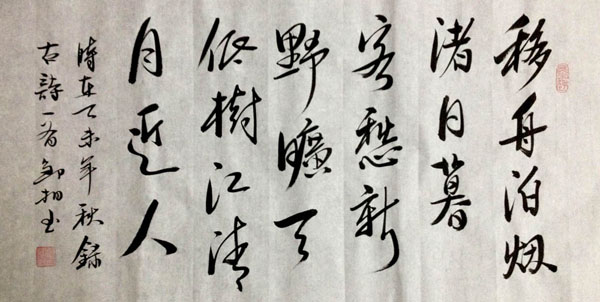 移舟泊烟
渚日暮
客愁新
野曠天
低樹江清
月近人
時在未年秋錄
古詩一首